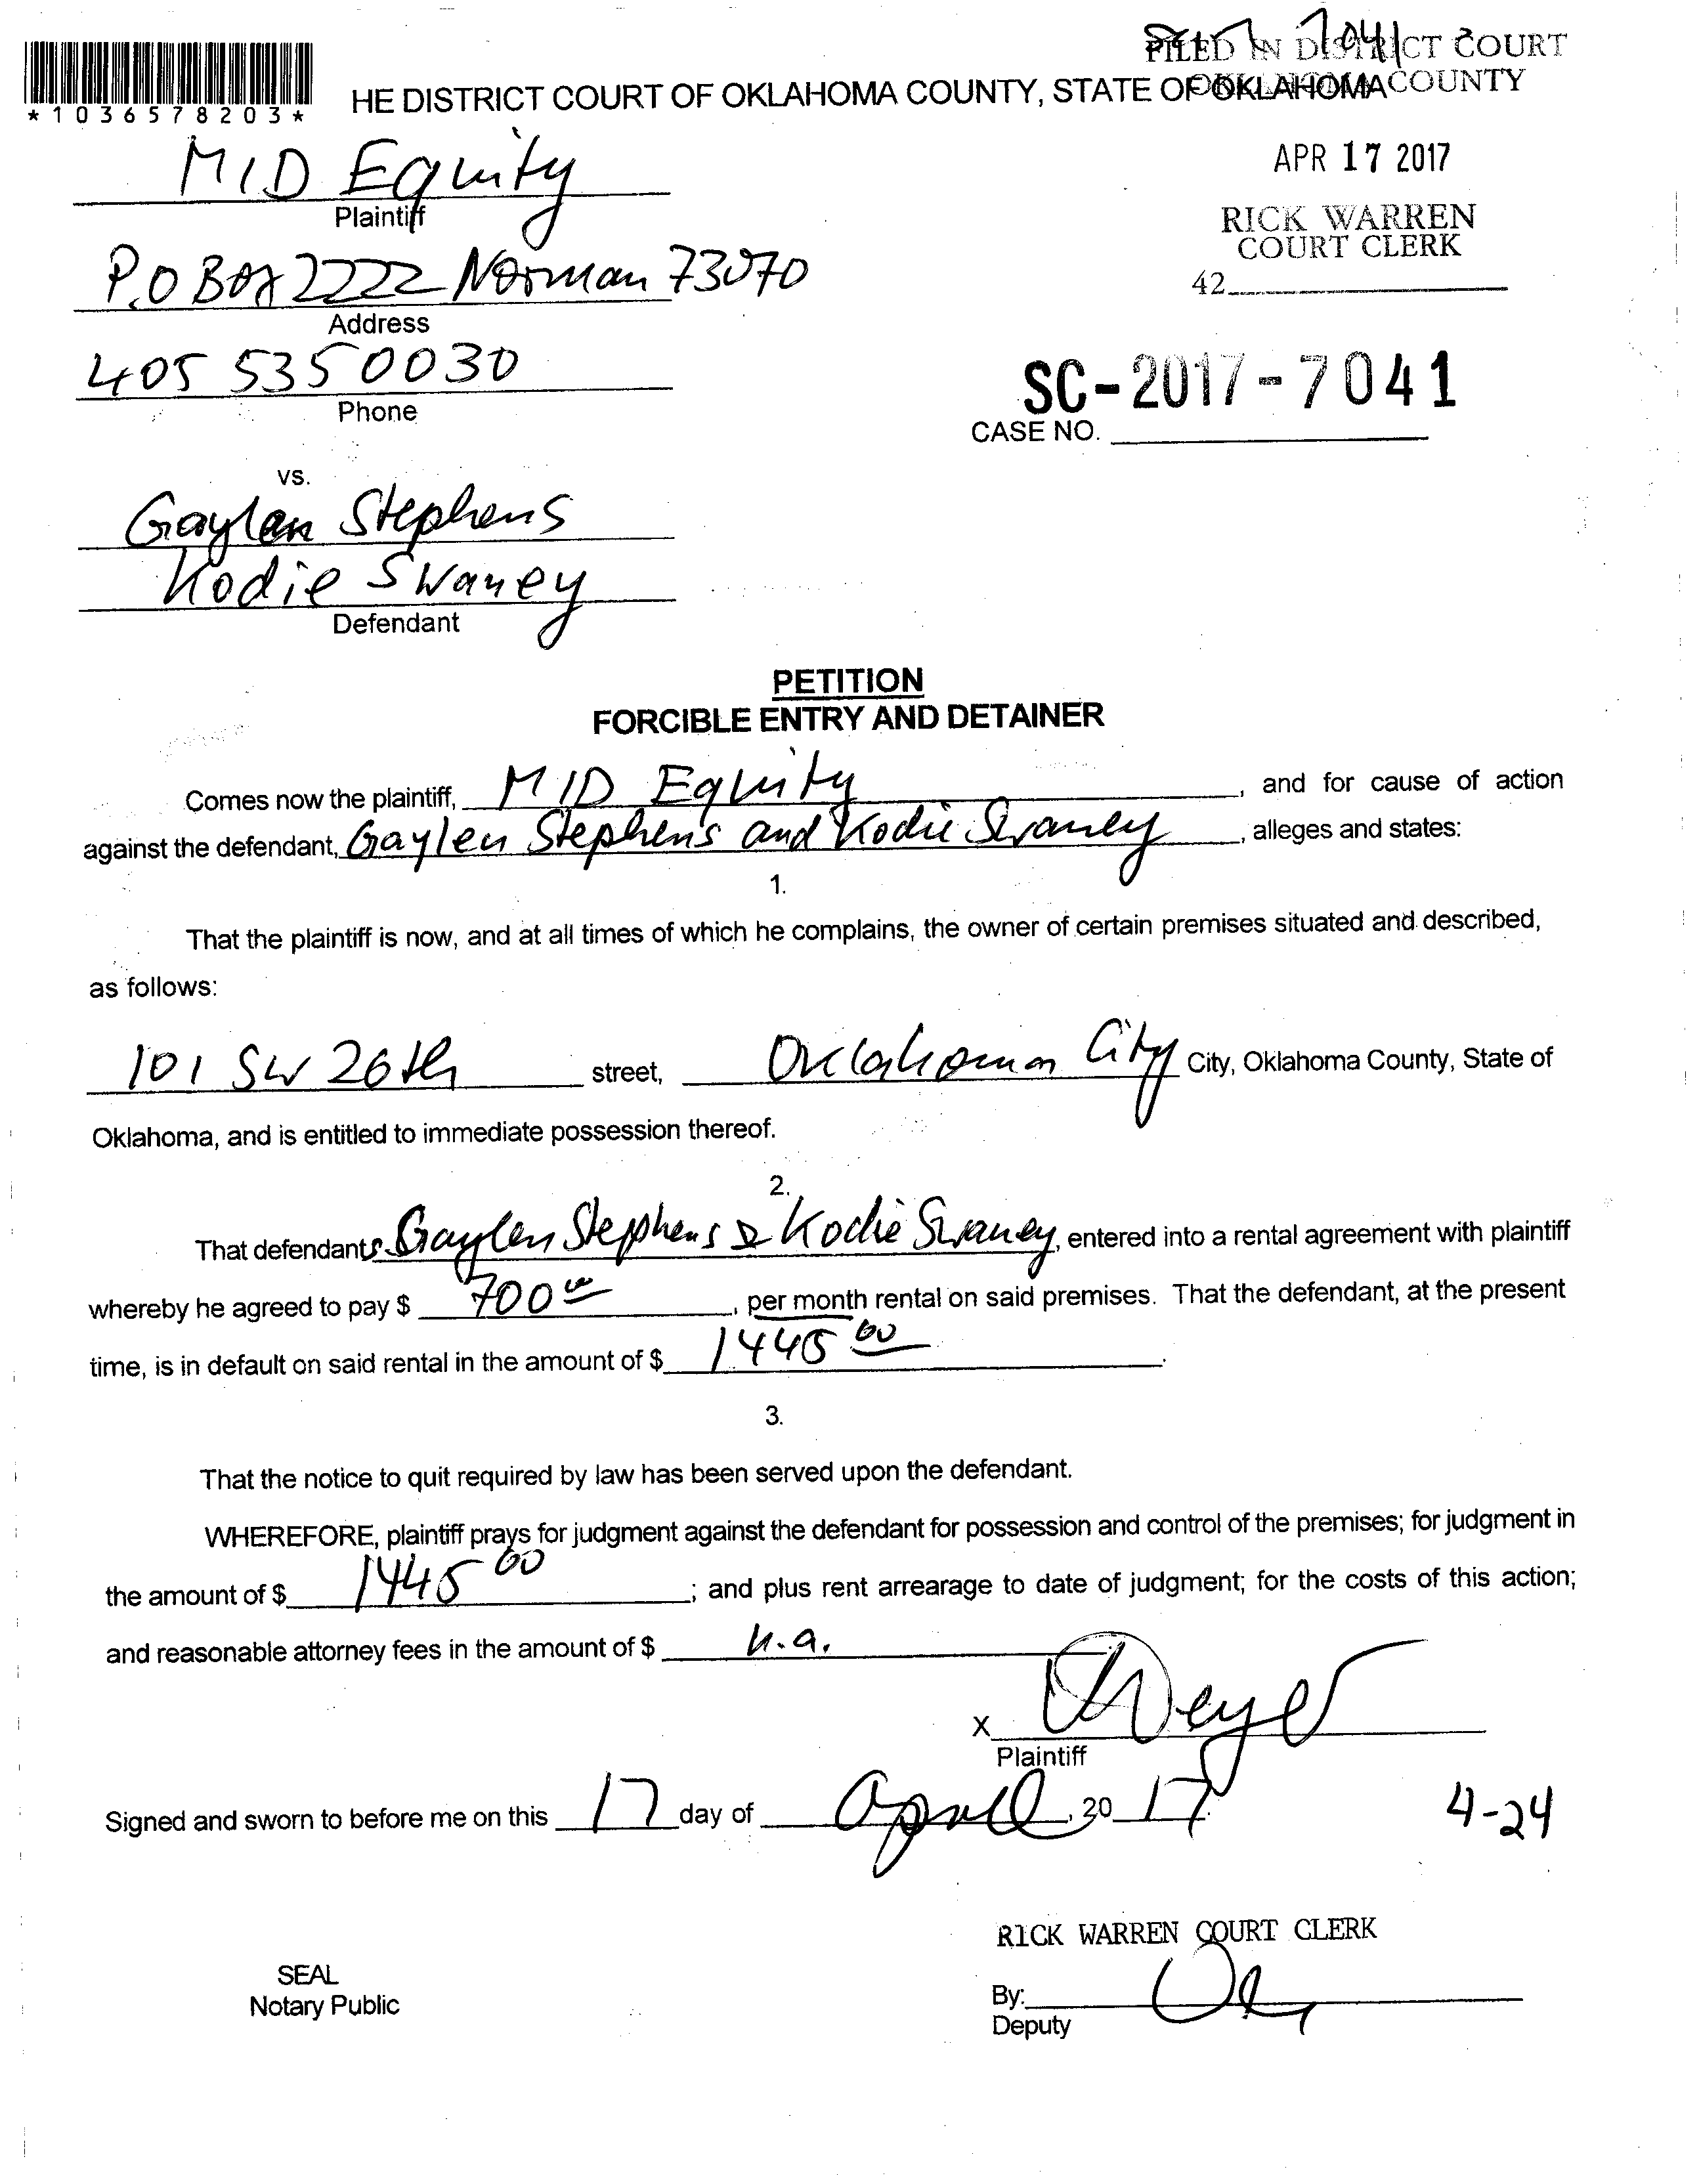 FILED IN DISTRICT COURT
OKLAHOMA COUNTY
*1036578203*
HE DISTRICT COURT OF OKLAHOMA COUNTY, STATE OF OKLAHOMA
APR 17 2017
MID Equity
Plaintiff
RICK WARREN
COURT CLERK
P.O Box 2222 Norman 73070
42
Address
405 535 0030
Phone
SC-2017-7041
CASE NO.
vs.
Gaylen Stephens
Kodie Swaney
Defendant
PETITION
FORCIBLE ENTRY AND DETAINER
Comes now the plaintiff, MID Equity, and for cause of action
against the defendant, Gaylen Stephens and Kodie Swaney, alleges and states:
1.
That the plaintiff is now, and at all times of which he complains, the owner of certain premises situated and described,
as follows:
101 SW 26th street, Oklahoma City City, Oklahoma County, State of
Oklahoma, and is entitled to immediate possession thereof.
2.
That defendants Gaylen Stephens & Kodie Swaney, entered into a rental agreement with plaintiff
whereby he agreed to pay $ 700 00, per month rental on said premises. That the defendant, at the present
time, is in default on said rental in the amount of $ 1445 00.
3.
That the notice to quit required by law has been served upon the defendant.
WHEREFORE, plaintiff prays for judgment against the defendant for possession and control of the premises; for judgment in
the amount of $ 1445 00; and plus rent arrearage to date of judgment; for the costs of this action;
and reasonable attorney fees in the amount of $ n.a.
X
Plaintiff
Signed and sworn to before me on this 17 day of April, 20 17.
4-24
RICK WARREN COURT CLERK
SEAL
Notary Public
By:
Deputy